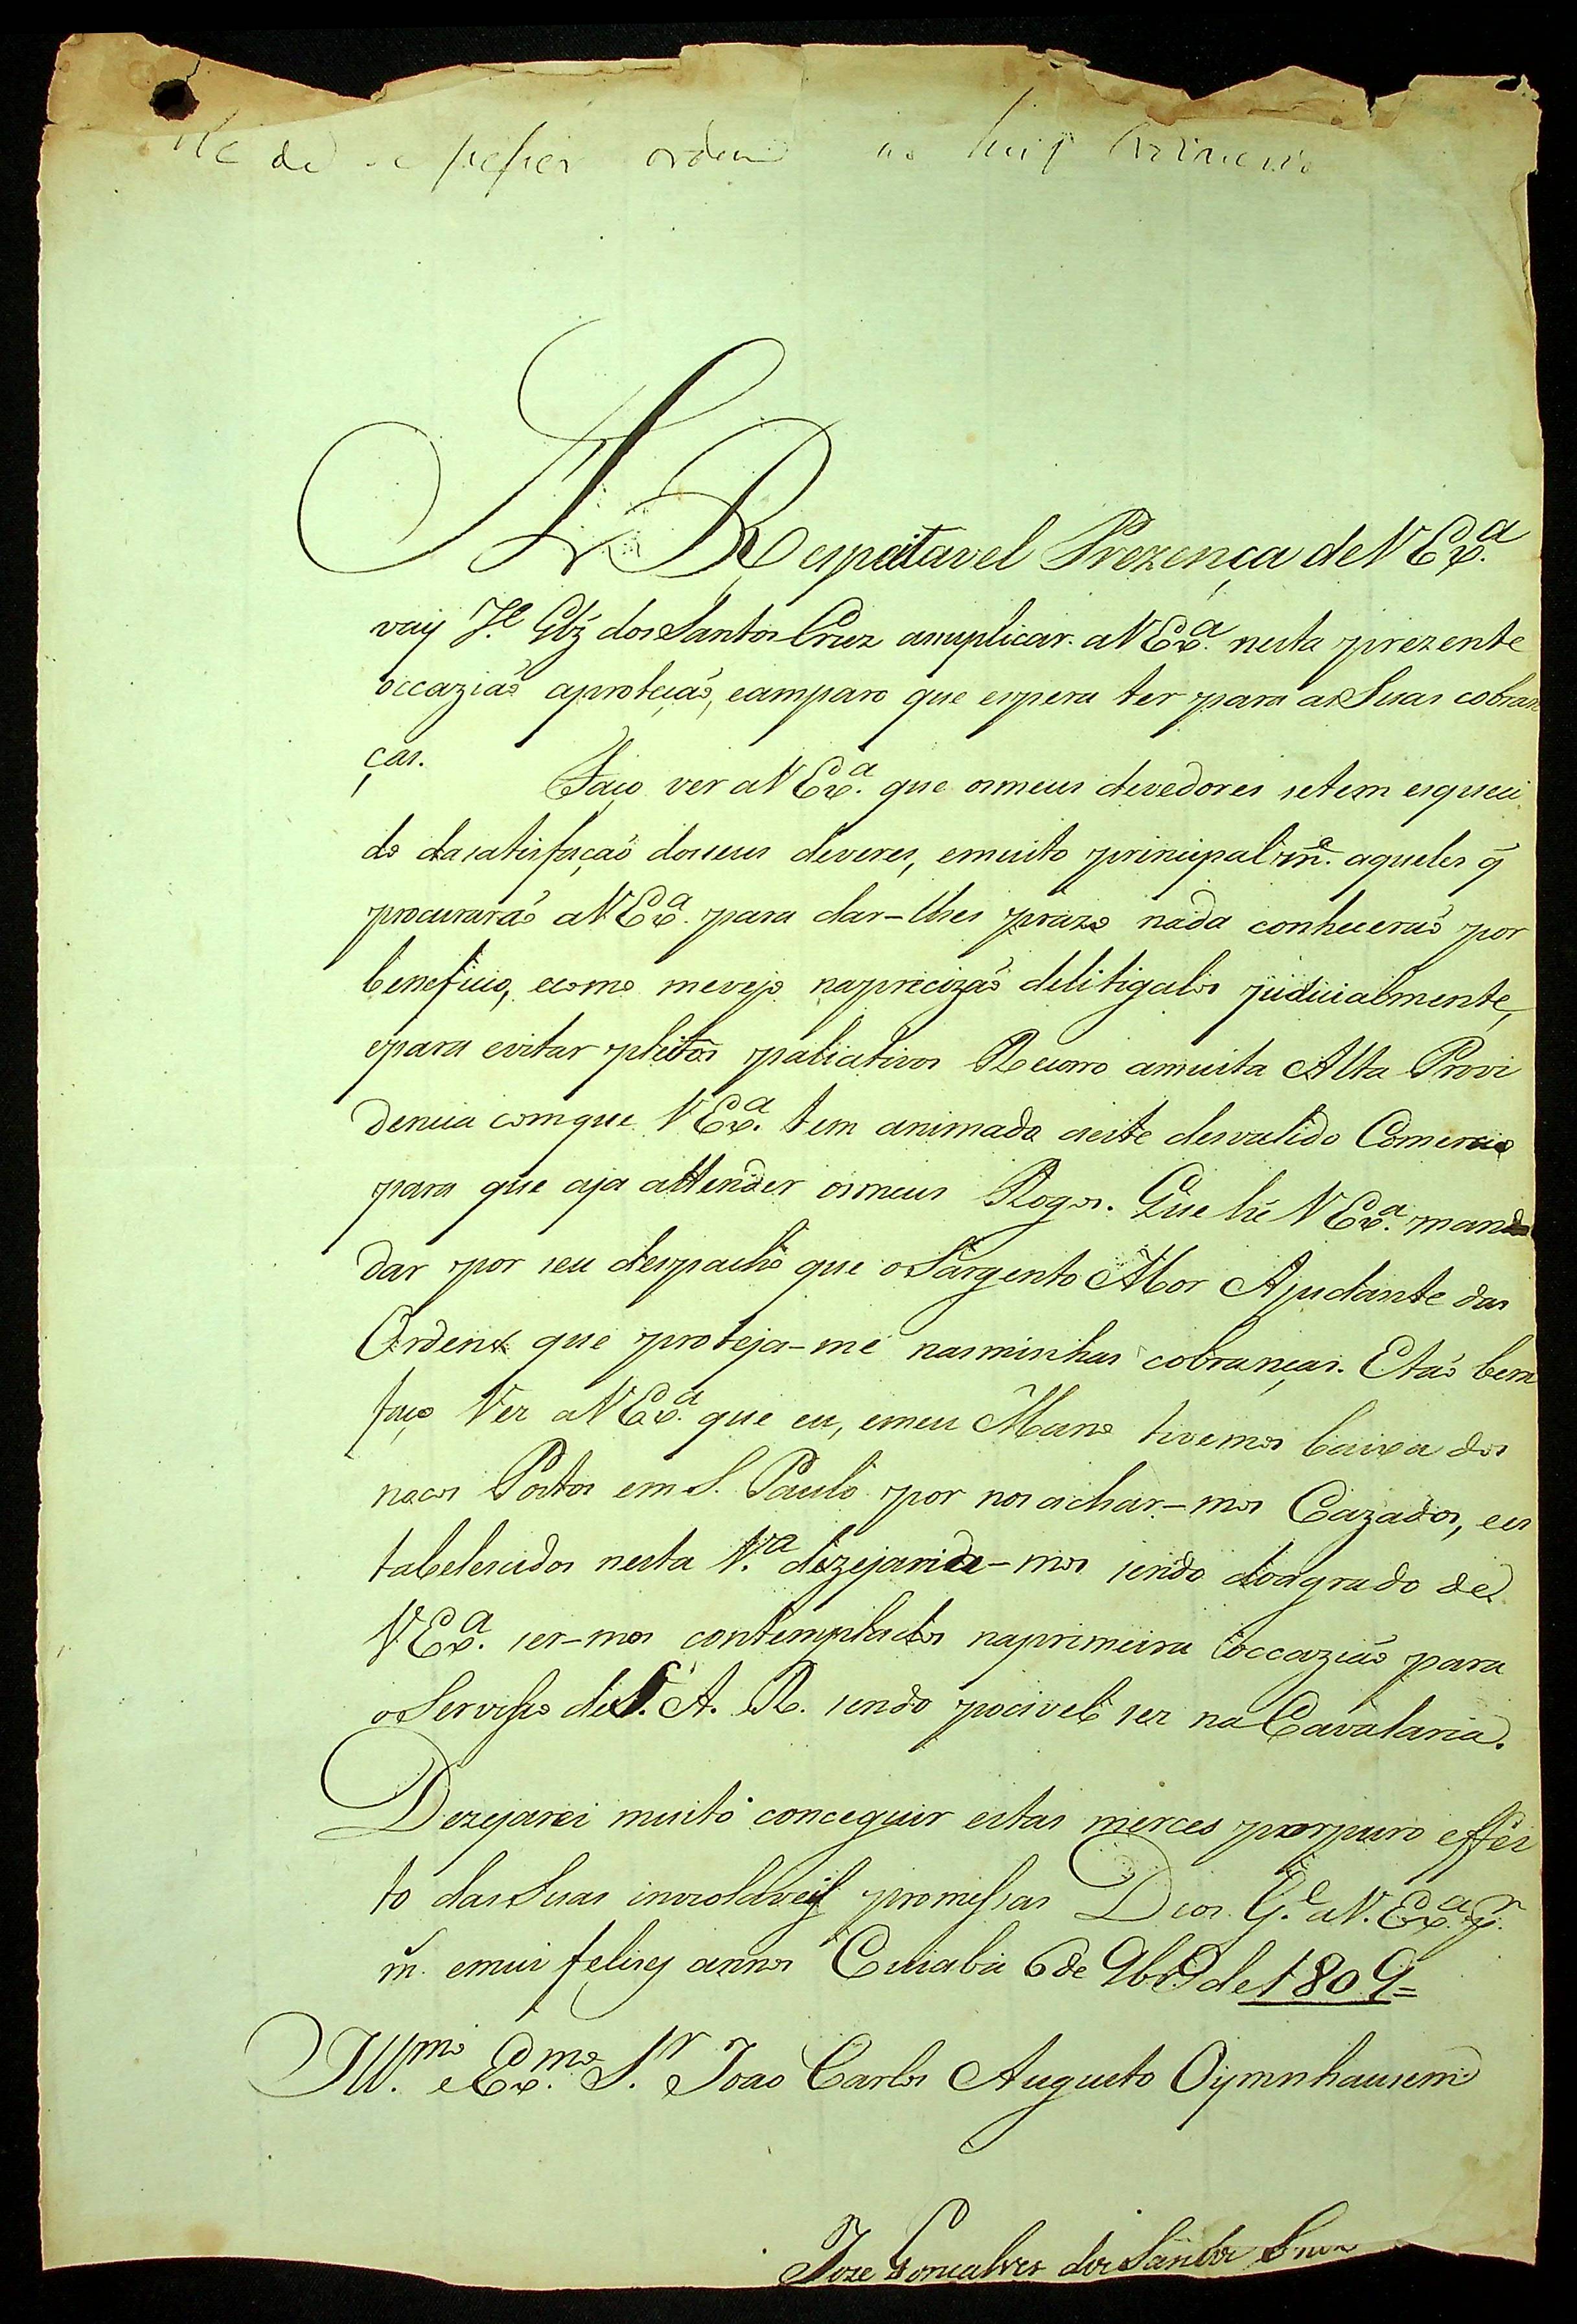 de se expedir ordem ao Juiz Ordinario
A Respeitavel Prezença de V Ex.ª
vay J.e Glz dos Santos Cruz asuplicar. a V Ex.ª nesta prezente
occazião aproteção, eamparo que espera ter para as Suas cobran
ças.
Faço ver a V Ex.ª que osmeus devedores setem esqueci
do dasatisfação dosseus deveres, emuito principalm.e aqueles q̃
procurarão a V. Ex.ª para dar-lhes prazo nada conhecerão por
beneficio, ecomo mevejo naprecizão delitigalos judicialmente,
epara evitar pleitos paliativos Recorro amuita Alta Provi
dencia comque V Ex.ª tem animado aeste desvalido Comercio
para que aja attender osmeus Rogos. Que hé V Ex.ª man
dar por seu despacho que o Sargento Mor Ajudante das
Ordens que proteja-me nasminhas cobranças. Etão bem
faço Ver a V Ex.ª que eu, emeu Mano tivemos baixa dos
nocos Postos em S. Paulo por nos achar-mos Cazados, ees
tabelescidos nesta V.ª dezejando-mos sendo doagrado de
V. Ex.ª ser-mos contemplados naprimeira occazião para
o Servisso de S. A. R. sendo pocivel ser na Cavalaria.
Dezejarei muito conceguir estas merces por puro effei
to das Suas inviolaveis promessas Deos G.e a V. Ex.ª p.r
m. emui felises annos Cuiabá 6 de 9br.o de 1809=
Ill.mo e Ex.mo S.r Joao Carlos Augusto Oÿmnhausem
Joze Goncalves dos Santos Cruz